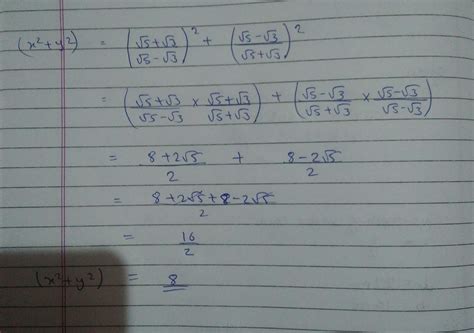 (x²+y²) = (√5+√3/√5-√3)² + (√5-√3/√5+√3)²
= (√5+√3/√5-√3 × √5+√3/√5+√3) + (√5-√3/√5+√3 × √5-√3/√5-√3)
= 8+2√5/2 + 8-2√5/2
= 8+2√5+8-2√5/2
= 16/2
(x²+y²) = 8